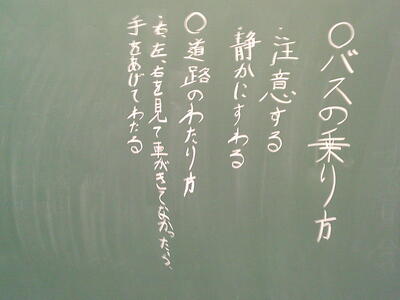 ○バスの乗り方
・注意する
静かにすわる
○道路のわたり方
・右、左、右を見て車がきてなかったら、
手をあげてわたる